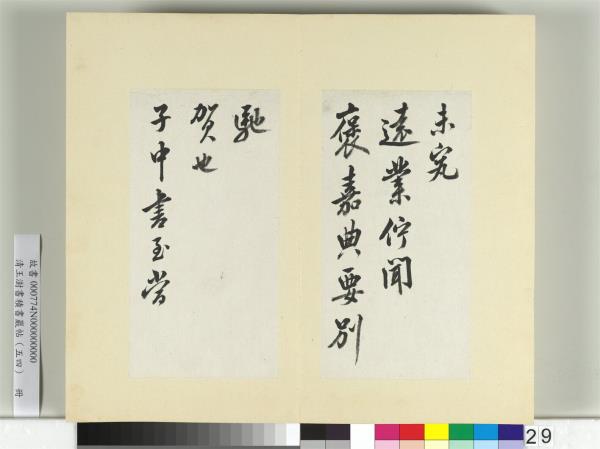 未究
遠業佇聞
褒嘉典要別
馳
賀也
子中書至嘗
故書000774N000000000
清王澍書積書巖帖（五四） 冊
29